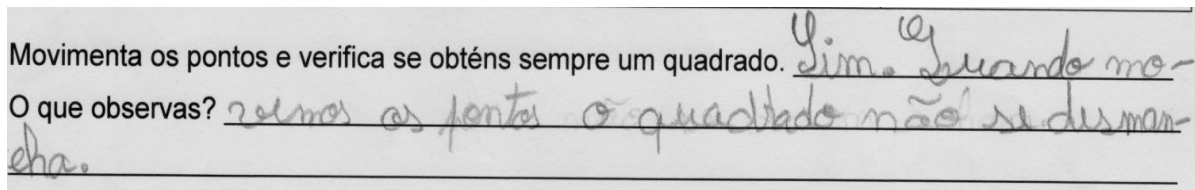 Movimenta os pontos e verifica se obténs sempre um quadrado. Sim. Quando mo-
O que observas? vemos os pontos o quadrado não se desman-
cha.